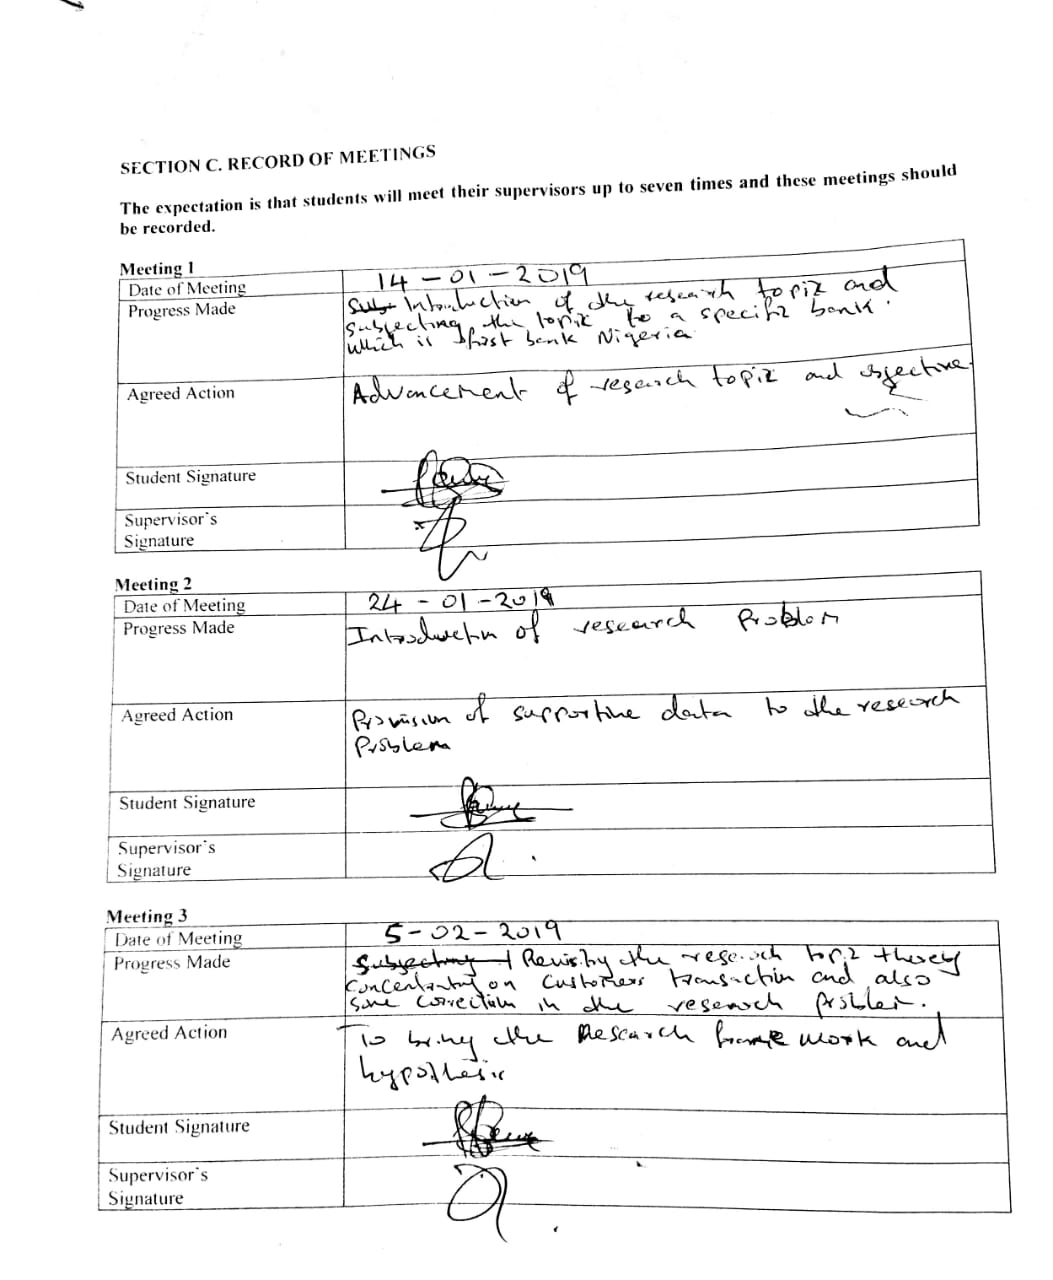 SECTION C. RECORD OF MEETINGS
The expectation is that students will meet their supervisors up to seven times and these meetings should
be recorded.
Meeting 1
Date of Meeting 14-01-2019
Progress Made Introduction of the research topic and
subjecting the topic to a specific bank.
which is first bank Nigeria
Agreed Action Advancement of research topic and objective
Student Signature
Supervisor's
Signature
Meeting 2
Date of Meeting 24-01-2019
Progress Made Introduction of research Problem
Agreed Action Provision of supportive data to the research
Problem
Student Signature
Supervisor's
Signature
Meeting 3
Date of Meeting 5-02-2019
Progress Made Subjecting Revisiting the research topic thereby
concentrating on customers transaction and also
some correction in the research problem.
Agreed Action To bring the Research frame work and
hypothesis
Student Signature
Supervisor's
Signature